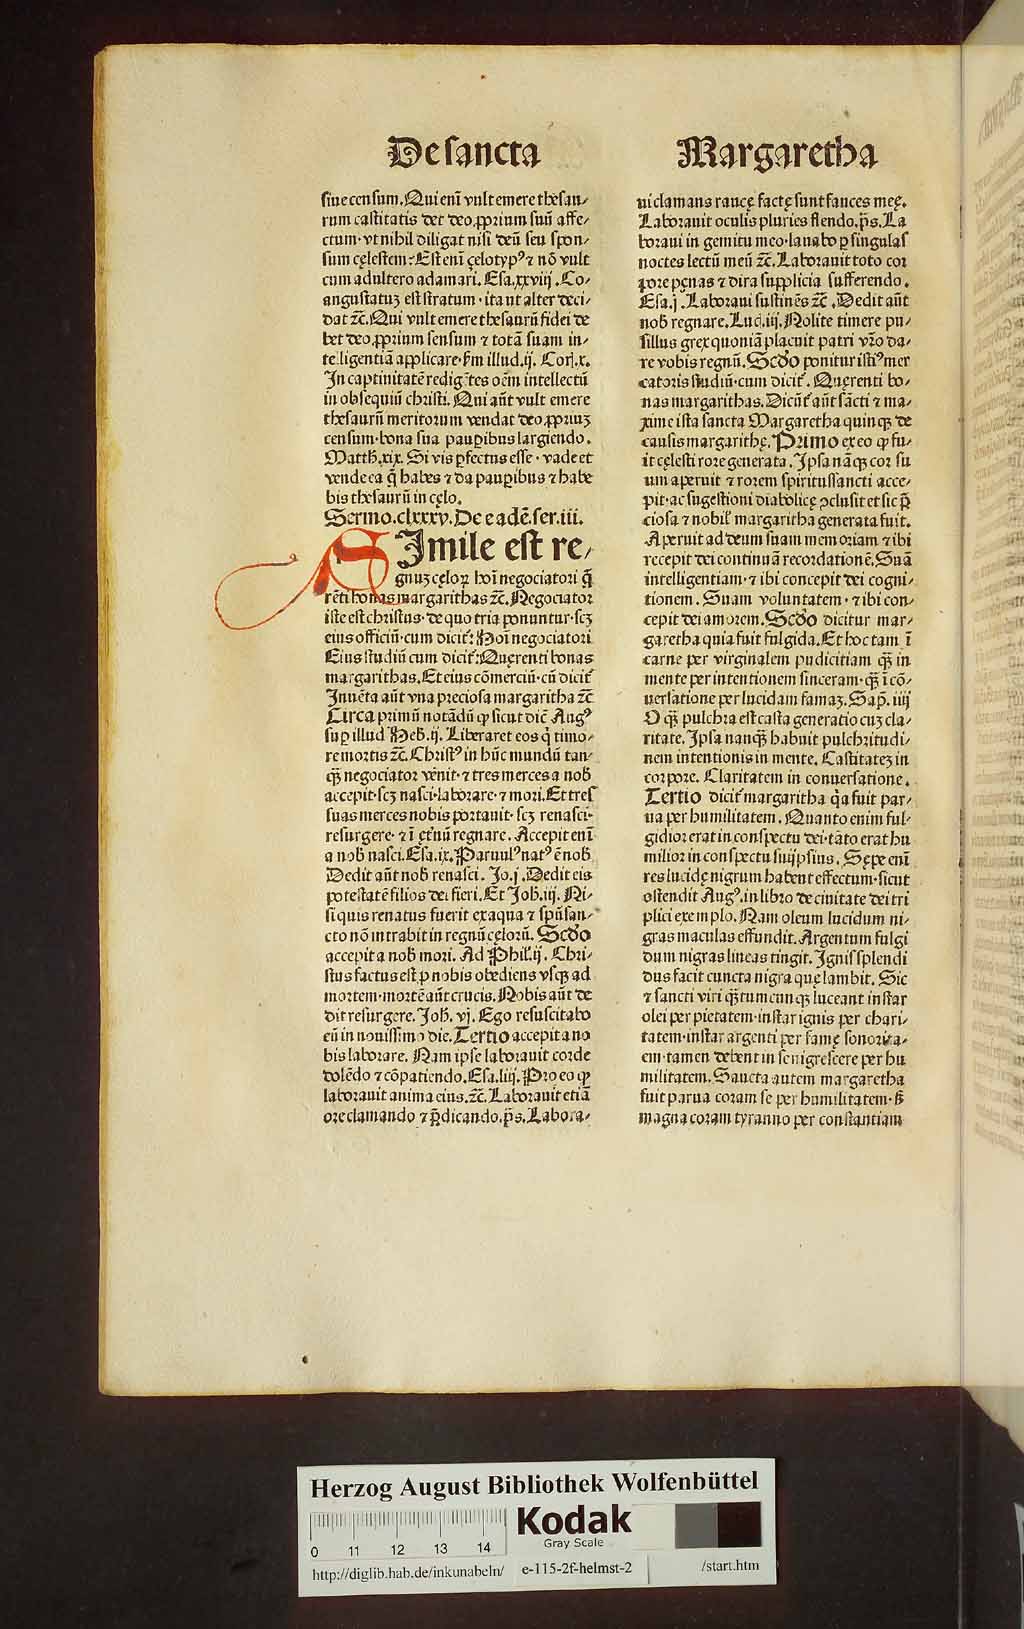 De sancta
siue censum. Qui enī vult emere thesau-
rum castitatis det deo ꝓprium suū affe-
ctum· vt nihil diligat nisi deū seu spon-
sum cęlestem: Est enī çelotypꝰ ⁊ nō vult
cum adultero adamari. Esa. xxviij. Co-
angustatuȝ est stratum· ita ut alter deci-
dat ⁊c̄. Qui vult emere thesaurū fidei de
bet deo ꝓprium sensum ⁊ totā suam in-
telligentiā applicare· fm illud. ij. Corj. x.
In captiuitatē redigētes oēm intellectū
in obsequiū christi. Qui aūt vult emere
thesaurū meritorum vendat deo ꝓpriuȝ
censum· bona sua pauꝑibus largiendo.
Matth. xix. Si vis ꝑfectus esse· vade et
vende ea q̄ habes ⁊ da pauꝑibus ⁊ habe
bis thesaurū in cęlo.
Sermo. clxxxv. De eadē. ser. iii.
SImile est re-
gnuȝ cęloꝝ hoī negociatori q̄
rēti bonas margarithas ⁊c̄. Negociator
iste est christus· de quo tria ponuntur· scȝ
eius officiū· cum dicit̄: Hoī negociatori
Eius studiū cum dicit̄: Quęrenti bonas
margarithas. Et eius cōmerciū· cū dicit̄
Inuēta aūt vna preciosa margaritha ⁊c̄
Circa primū notādū ꝙ sicut dic̄ Augꝰ
suꝑ illud Heb. ij. Liberaret eos q̄ timo-
re mortis ⁊c̄. Christꝰ in hūc mundū tan-
q̄ȝ negociator vēnit· ⁊ tres merces a nob̄
accepit· scȝ nasci· laborare· ⁊ mori. Et tres
suas merces nobis portauit· scȝ renasci·
resurgere· ⁊ ī et̄nū regnare. Accepit enī
a nob̄ nasci. Esa. ix. Paruulꝰ natꝰ ē nob̄
Dedit aūt nob̄ renasci. Jo. j. Dedit eis
potestatē filios dei fieri. Et Joh̄. iij. Ni-
si quis renatus fuerit ex aqua ⁊ spū san-
cto nō intrabit in regnū cęlorū. Scd̄o
accepit a nob̄ mori. Ad Phil̄. ij. Chri-
stus factus est ꝓ nobis obediens vsqȝ ad
mortem· mortē aūt crucis. Nobis aūt de
dit resurgere. Joh̄. vj. Ego resuscitabo
eū in nouissimo die. Tertio accepit a no
bis laborare. Nam ipse laborauit corde
dolēdo ⁊ cōpatiendo. Esa. liij. Pro eo ꝙ
laborauit anima eius. ⁊c̄. Laborauit etiā
ore clamando ⁊ p̄dicando. p̄s. Labora-
Margaretha
ui clamans raucę factę sunt fauces meę.
Laborauit oculis pluries flendo. p̄s. La
boraui in gemitu meo· lauabo ꝑ singulas
noctes lectū meū ⁊c̄. Laborauit toto cor
pore pęnas ⁊ dira supplicia sufferendo.
Esa. j. Laboraui sustinēs ⁊c̄. Dedit aūt
nob̄ regnare. Luc̄. iij. Nolite timere pu-
sillus grex quoniā placuit patri vr̄o da-
re vobis regnū. Scd̄o ponitur istiꝰ mer
catoris studiū· cum dicit̄. Quęrenti bo-
nas margarithas. Dicūt̄ aūt sācti ⁊ ma-
xime ista sancta Margaretha quinqȝ de
causis margarithę. Primo ex eo ꝙ fu-
it cęlesti rore generata. Ipsa nāqȝ cor su
um aperuit ⁊ rorem spiritussancti acce-
pit· ac sugestioni diabolicę ꝓclusit et sic p̄
ciosa ⁊ nobil̄ margaritha generata fuit.
Aperuit ad deum suam memoriam ⁊ ibi
recepit dei continuā recordationē. Suā
intelligentiam· ⁊ ibi concepit dei cogni-
tionem. Suam voluntatem· ⁊ ibi con-
cepit dei amorem. Scd̄o dicitur mar-
garetha quia fuit fulgida. Et hoc tam ī
carne per virginalem pudicitiam q̄ȝ in
mente per intentionem sinceram· q̄ȝ ī cō-
uersatione per lucidam famaȝ. Sap̄. iiij
O q̄ȝ pulchra est casta generatio cuȝ cla-
ritate. Ipsa nanq̄ȝ habuit pulchritudi-
nem intentionis in mente. Castitateȝ in
corpore. Claritatem in conuersatione.
Tertio dicit̄ margaritha q̄a fuit par-
ua per humilitatem. Quanto enim ful-
gidior erat in conspectu dei· tāto erat hu
milior in conspectu suijpsius. Sępe enī
res lucidę nigrum habent effectum· sicut
ostendit Augꝰ. in libro de ciuitate dei tri
plici exemplo. Nam oleum lucidum ni-
gras maculas effundit. Argentum fulgi
dum nigras lineas tingit. Ignis splendi
dus facit cuncta nigra quę lambit. Sic
⁊ sancti viri q̄ȝtumcunqȝ luceant instar
olei per pietatem· instar ignis per chari-
tatem· instar argenti per famę sonorita-
em· tamen debent in se nigrescere per hu
militatem. Sancta autem margaretha
fuit parua coram se per humilitatem· s̄
magna coram tyranno per constantiam
Herzog August Bibliothek Wolfenbüttel
0 11 12 13 14
Kodak
Gray Scale
http://diglib.hab.de/inkunabeln/ e-115-2f-helmst-2 /start.htm